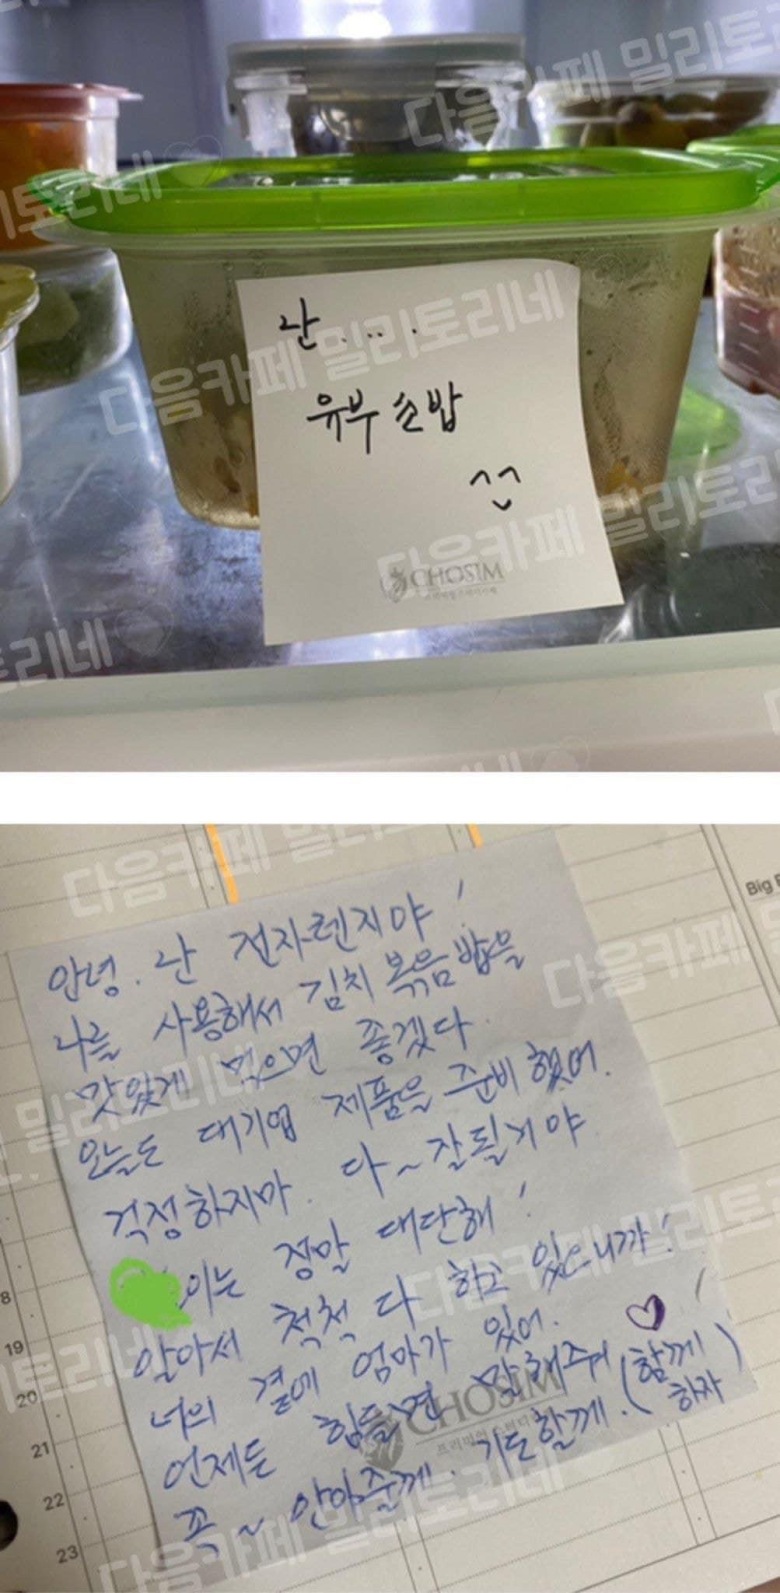 난....
유부초밥
^^
CHOSIM
안녕. 난 전자렌지야!
나를 사용해서 김치 볶음밥을
맛있게 먹으면 좋겠다.
오늘도 대기업 제품을 준비했어.
걱정하지마. 다~잘될거야
이는 정말 대단해!
알아서 척척 다 하고 있으니까!
너의 곁에 엄마가 있어. ♡
언제든 힘들면 말해줘! (함께
하자)
꼭~안아줄께. 기도할께.
CHOSIM
Big
8
19
20
21
22
23
다음카페 밀리토리네